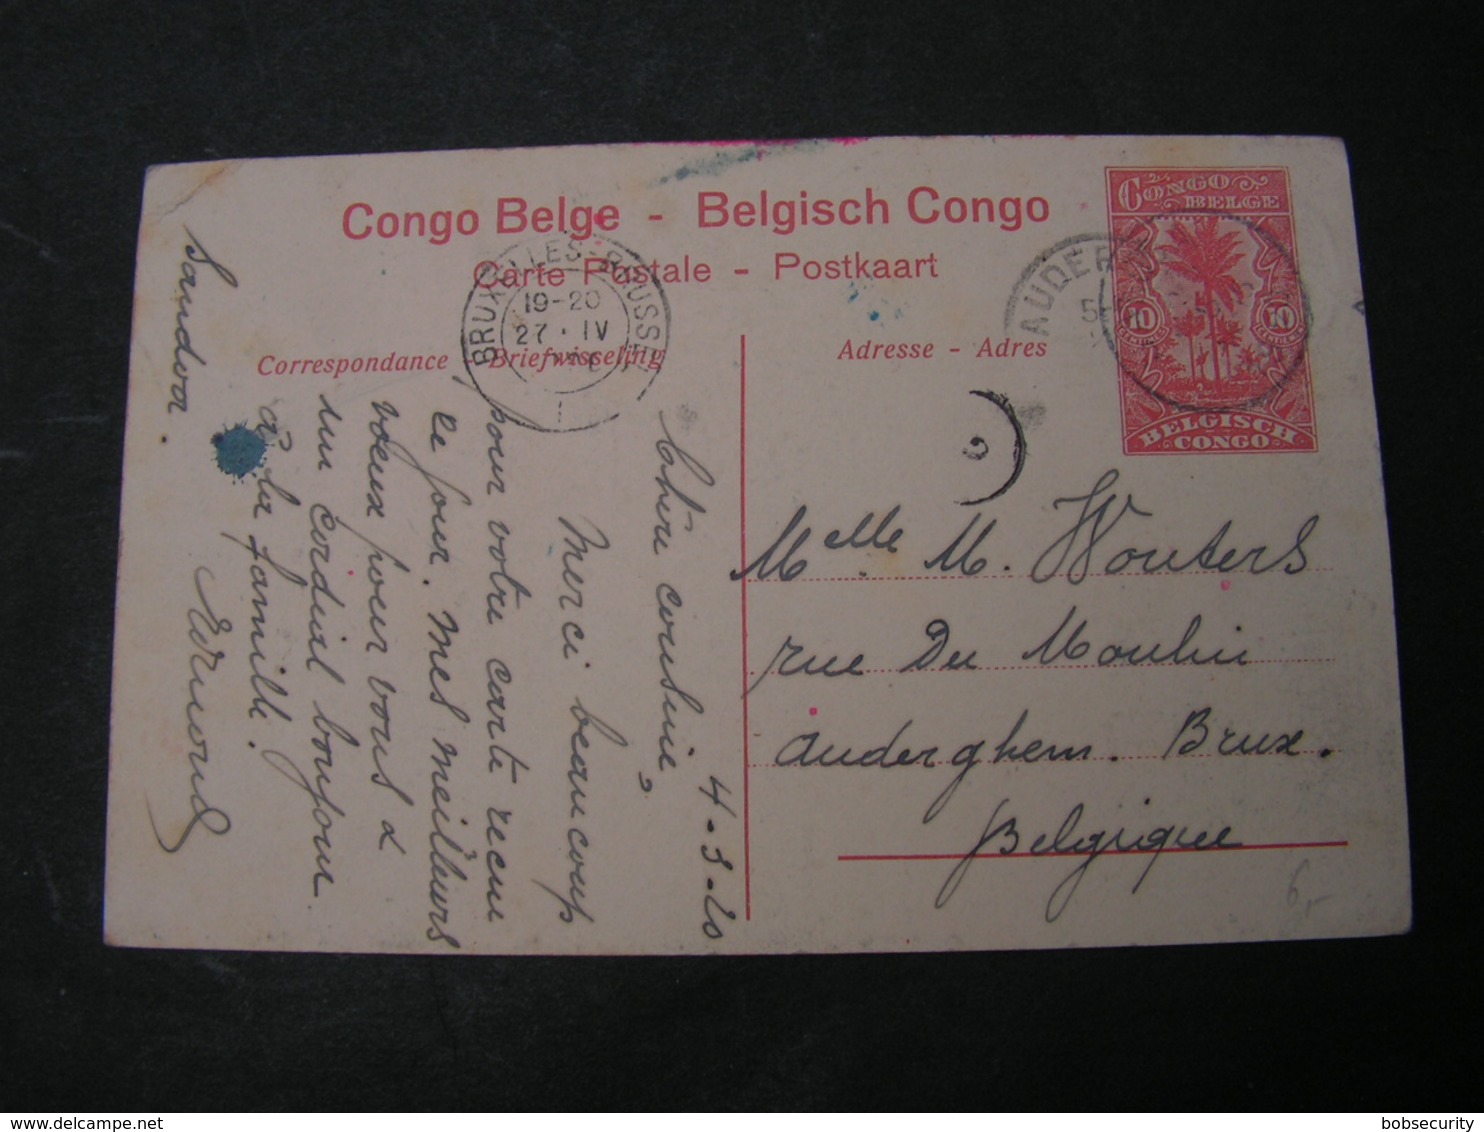 Congo Belge - Belgisch Congo
Carte Postale - Postkaart
Correspondance Briefwisseling
Adresse - Adres
CONGO
BELGE
10 10
BELGISCH
CONGO
BRUXELLES - BRUSSEL
19-20
27 · IV
AUDER
5
6
Sandoa.
4-3-20
Chère cousine,
Merci beaucoup
pour votre carte recue
ce jour. Mes meilleurs
voeux pour vous &
un cordial bonjour
à la famille.
Melle M. Wouters
rue Du Moulin
Auderghem. Brux.
Belgique
6,-
delcampe.net
bobsecurity